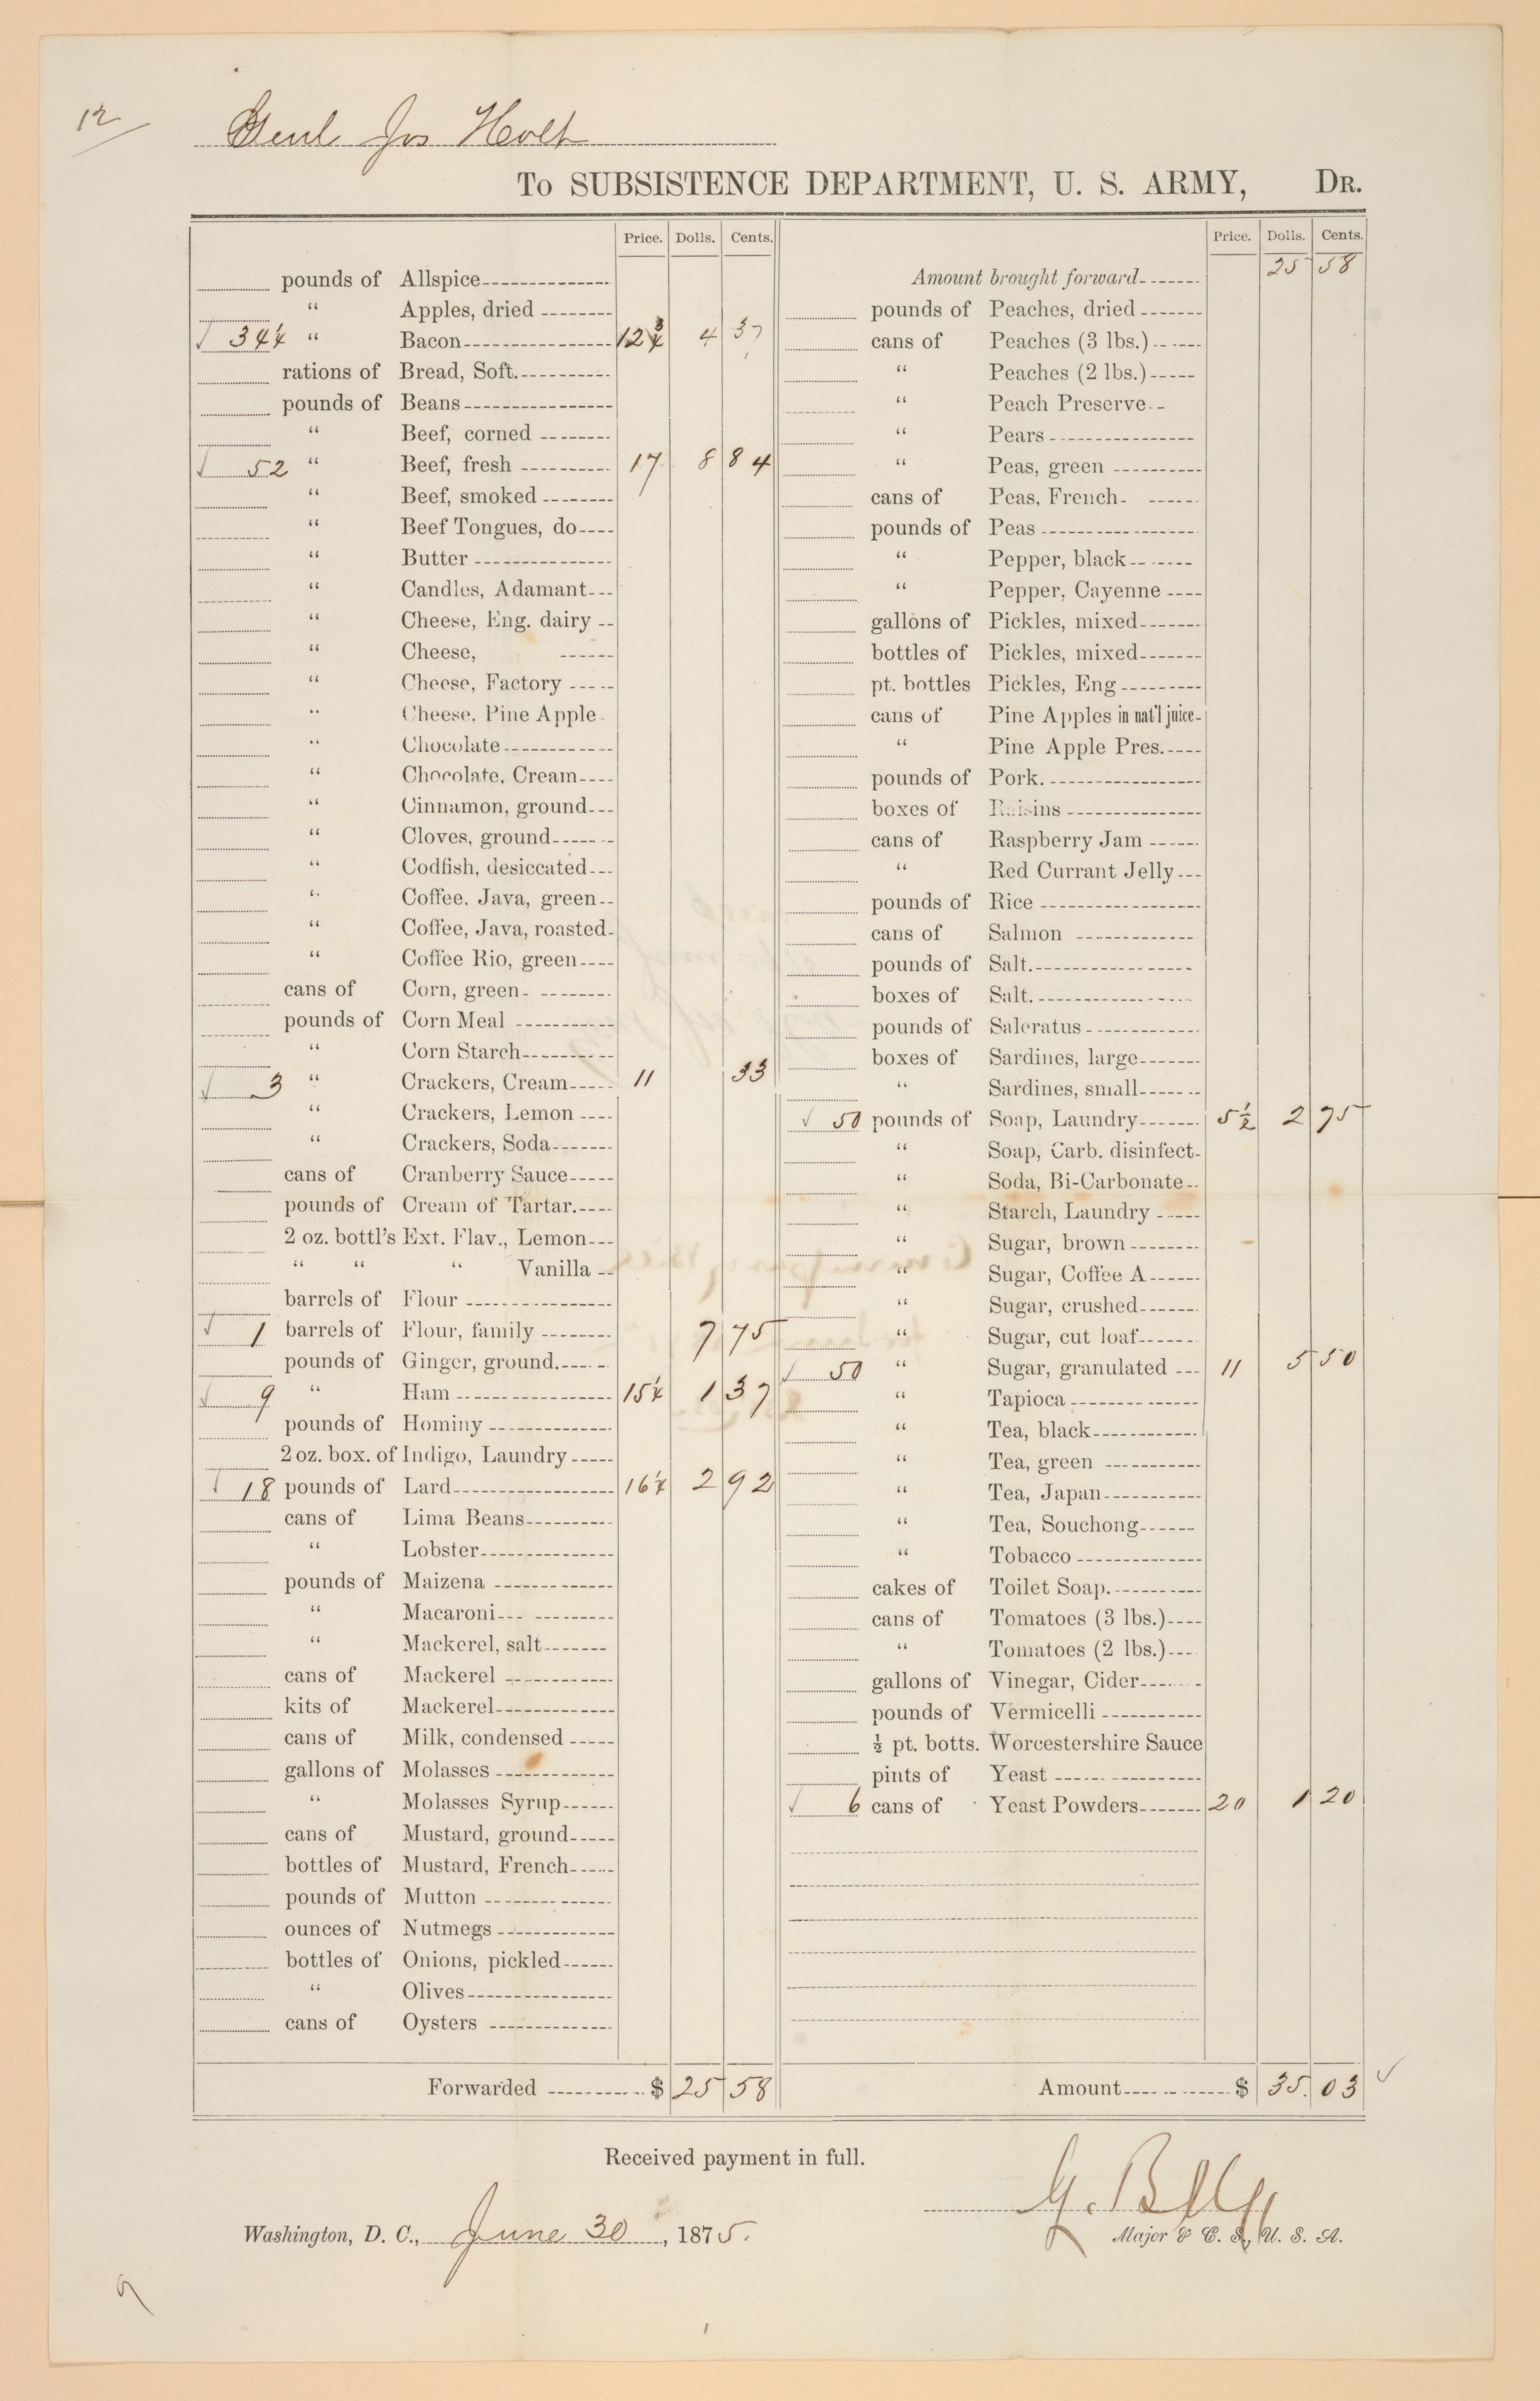 12
Genl Jos Holt
To SUBSISTENCE DEPARTMENT, U. S. ARMY, Dr.
Price. Dolls. Cents.
pounds of Allspice
“ Apples, dried
√ 34¼ “ Bacon 12¾ 4 37
rations of Bread, Soft.
pounds of Beans
“ Beef, corned
√ 52 “ Beef, fresh 17 8 84
“ Beef, smoked
“ Beef Tongues, do
“ Butter
“ Candles, Adamant
“ Cheese, Eng. dairy
“ Cheese,
“ Cheese, Factory
“ Cheese. Pine Apple
“ Chocolate
“ Chocolate, Cream
“ Cinnamon, ground
“ Cloves, ground
“ Codfish, desiccated
“ Coffee. Java, green
“ Coffee, Java, roasted
“ Coffee Rio, green
cans of Corn, green
pounds of Corn Meal
“ Corn Starch
√ 3 “ Crackers, Cream 11 33
“ Crackers, Lemon
“ Crackers, Soda
cans of Cranberry Sauce
pounds of Cream of Tartar.
2 oz. bottl's Ext. Flav., Lemon
“ “ “ Vanilla
barrels of Flour
√ 1 barrels of Flour, family 7 75
pounds of Ginger, ground.
√ 9 “ Ham 15¼ 1 37
pounds of Hominy
2 oz. box. of Indigo, Laundry
√ 18 pounds of Lard 16¼ 2 92
cans of Lima Beans
“ Lobster
pounds of Maizena
“ Macaroni
“ Mackerel, salt
cans of Mackerel
kits of Mackerel
cans of Milk, condensed
gallons of Molasses
“ Molasses Syrup
cans of Mustard, ground
bottles of Mustard, French
pounds of Mutton
ounces of Nutmegs
bottles of Onions, pickled
“ Olives
cans of Oysters
Forwarded $ 25 58
Price. Dolls. Cents.
Amount brought forward 25 58
pounds of Peaches, dried
cans of Peaches (3 lbs.)
“ Peaches (2 lbs.)
“ Peach Preserve
“ Pears
“ Peas, green
cans of Peas, French
pounds of Peas
“ Pepper, black
“ Pepper, Cayenne
gallons of Pickles, mixed
bottles of Pickles, mixed
pt. bottles Pickles, Eng
cans of Pine Apples in nat'l juice
“ Pine Apple Pres.
pounds of Pork.
boxes of Raisins
cans of Raspberry Jam
“ Red Currant Jelly
pounds of Rice
cans of Salmon
pounds of Salt.
boxes of Salt.
pounds of Saleratus
boxes of Sardines, large
“ Sardines, small
√ 50 pounds of Soap, Laundry 5½ 2 75
“ Soap, Carb. disinfect
“ Soda, Bi-Carbonate
“ Starch, Laundry
“ Sugar, brown
“ Sugar, Coffee A
“ Sugar, crushed
“ Sugar, cut loaf
√ 50 “ Sugar, granulated 11 5 50
“ Tapioca
“ Tea, black
“ Tea, green
“ Tea, Japan
“ Tea, Souchong
“ Tobacco
cakes of Toilet Soap.
cans of Tomatoes (3 lbs.)
“ Tomatoes (2 lbs.)
gallons of Vinegar, Cider
pounds of Vermicelli
½ pt. botts. Worcestershire Sauce
pints of Yeast
√ 6 cans of Yeast Powders 20 1 20
Amount $ 35.03 √
Received payment in full.
G. Bell
Washington, D. C., June 30, 1875.
Major & C. S., U. S. A.
9